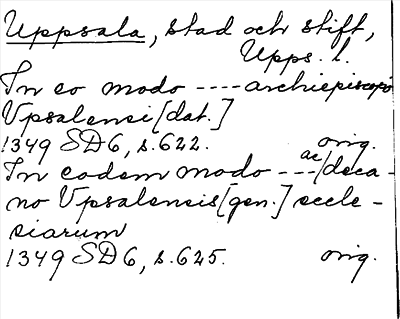 Uppsala, stad och stift,
Upps. l.
In eo modo ---- archiepiscopo
Vpsalensi [dat.]
1349 SD6, s.622. orig.
In eodem modo --- ac/deca-
no Vpsalensis [gen.] eccle-
siarum
1349 SD6, s.625. orig.